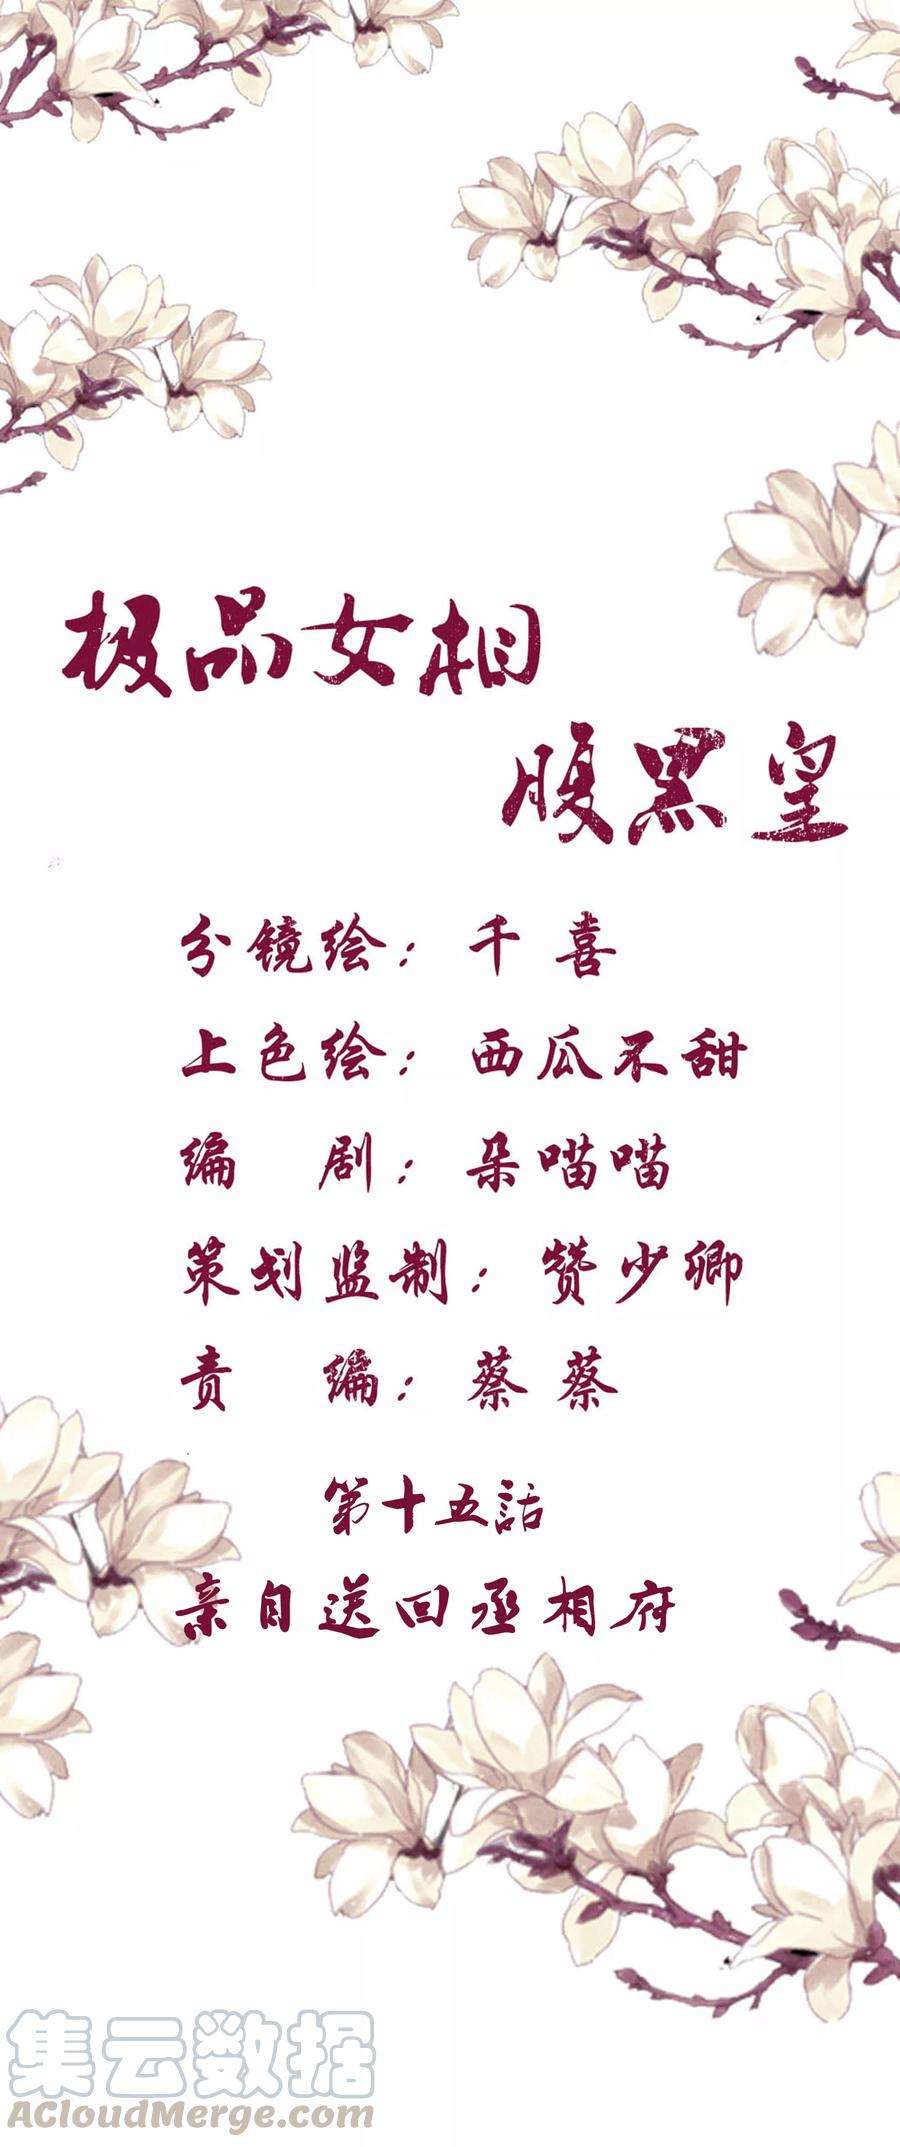 极品女相
腹黑皇
分镜绘：千喜
上色绘：西瓜不甜
编 剧：朵喵喵
策划监制：赞少卿
责 编：蔡蔡
第十五話
亲自送回丞相府
集云数据
ACloudMerge.com